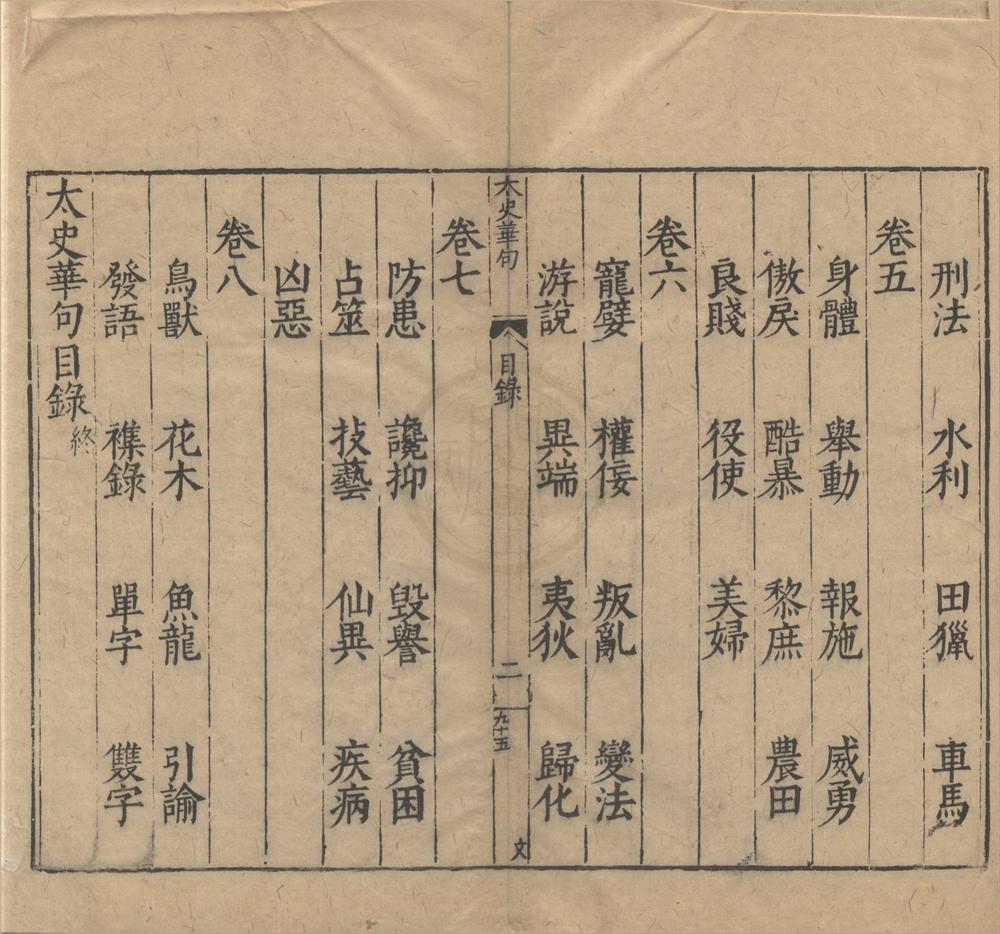 刑法 水利 田獵 車馬
卷五
身體 舉動 報施 威勇
傲戾 酷暴 黎庶 農田
良賤 役使 美婦
卷六
寵嬖 權佞 叛亂 變法
游說 異端 夷狄 歸化
太史華句 目錄 二 九十五 文
卷七
防患 讒抑 毀譽 貧困
占筮 技藝 仙異 疾病
凶惡
卷八
鳥獸 花木 魚龍 引諭
發語 襍錄 單字 雙字
太史華句目錄終